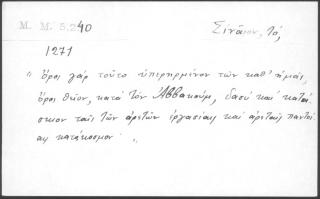 M. M. 5.240
Σίναιον, τό,
1271
" ὄρος γάρ τοῦτο ὑπερηρμένον τῶν καθ' ἡμᾶς,
ὄρος θεῖον, κατά τόν Ἀββακούμ, δασύ καί κατάσ-
κιον ταῖς τῶν ἀρετῶν ἐργασίαις καί ἀρεταῖς παντοί-
αις κατάκοσμον "